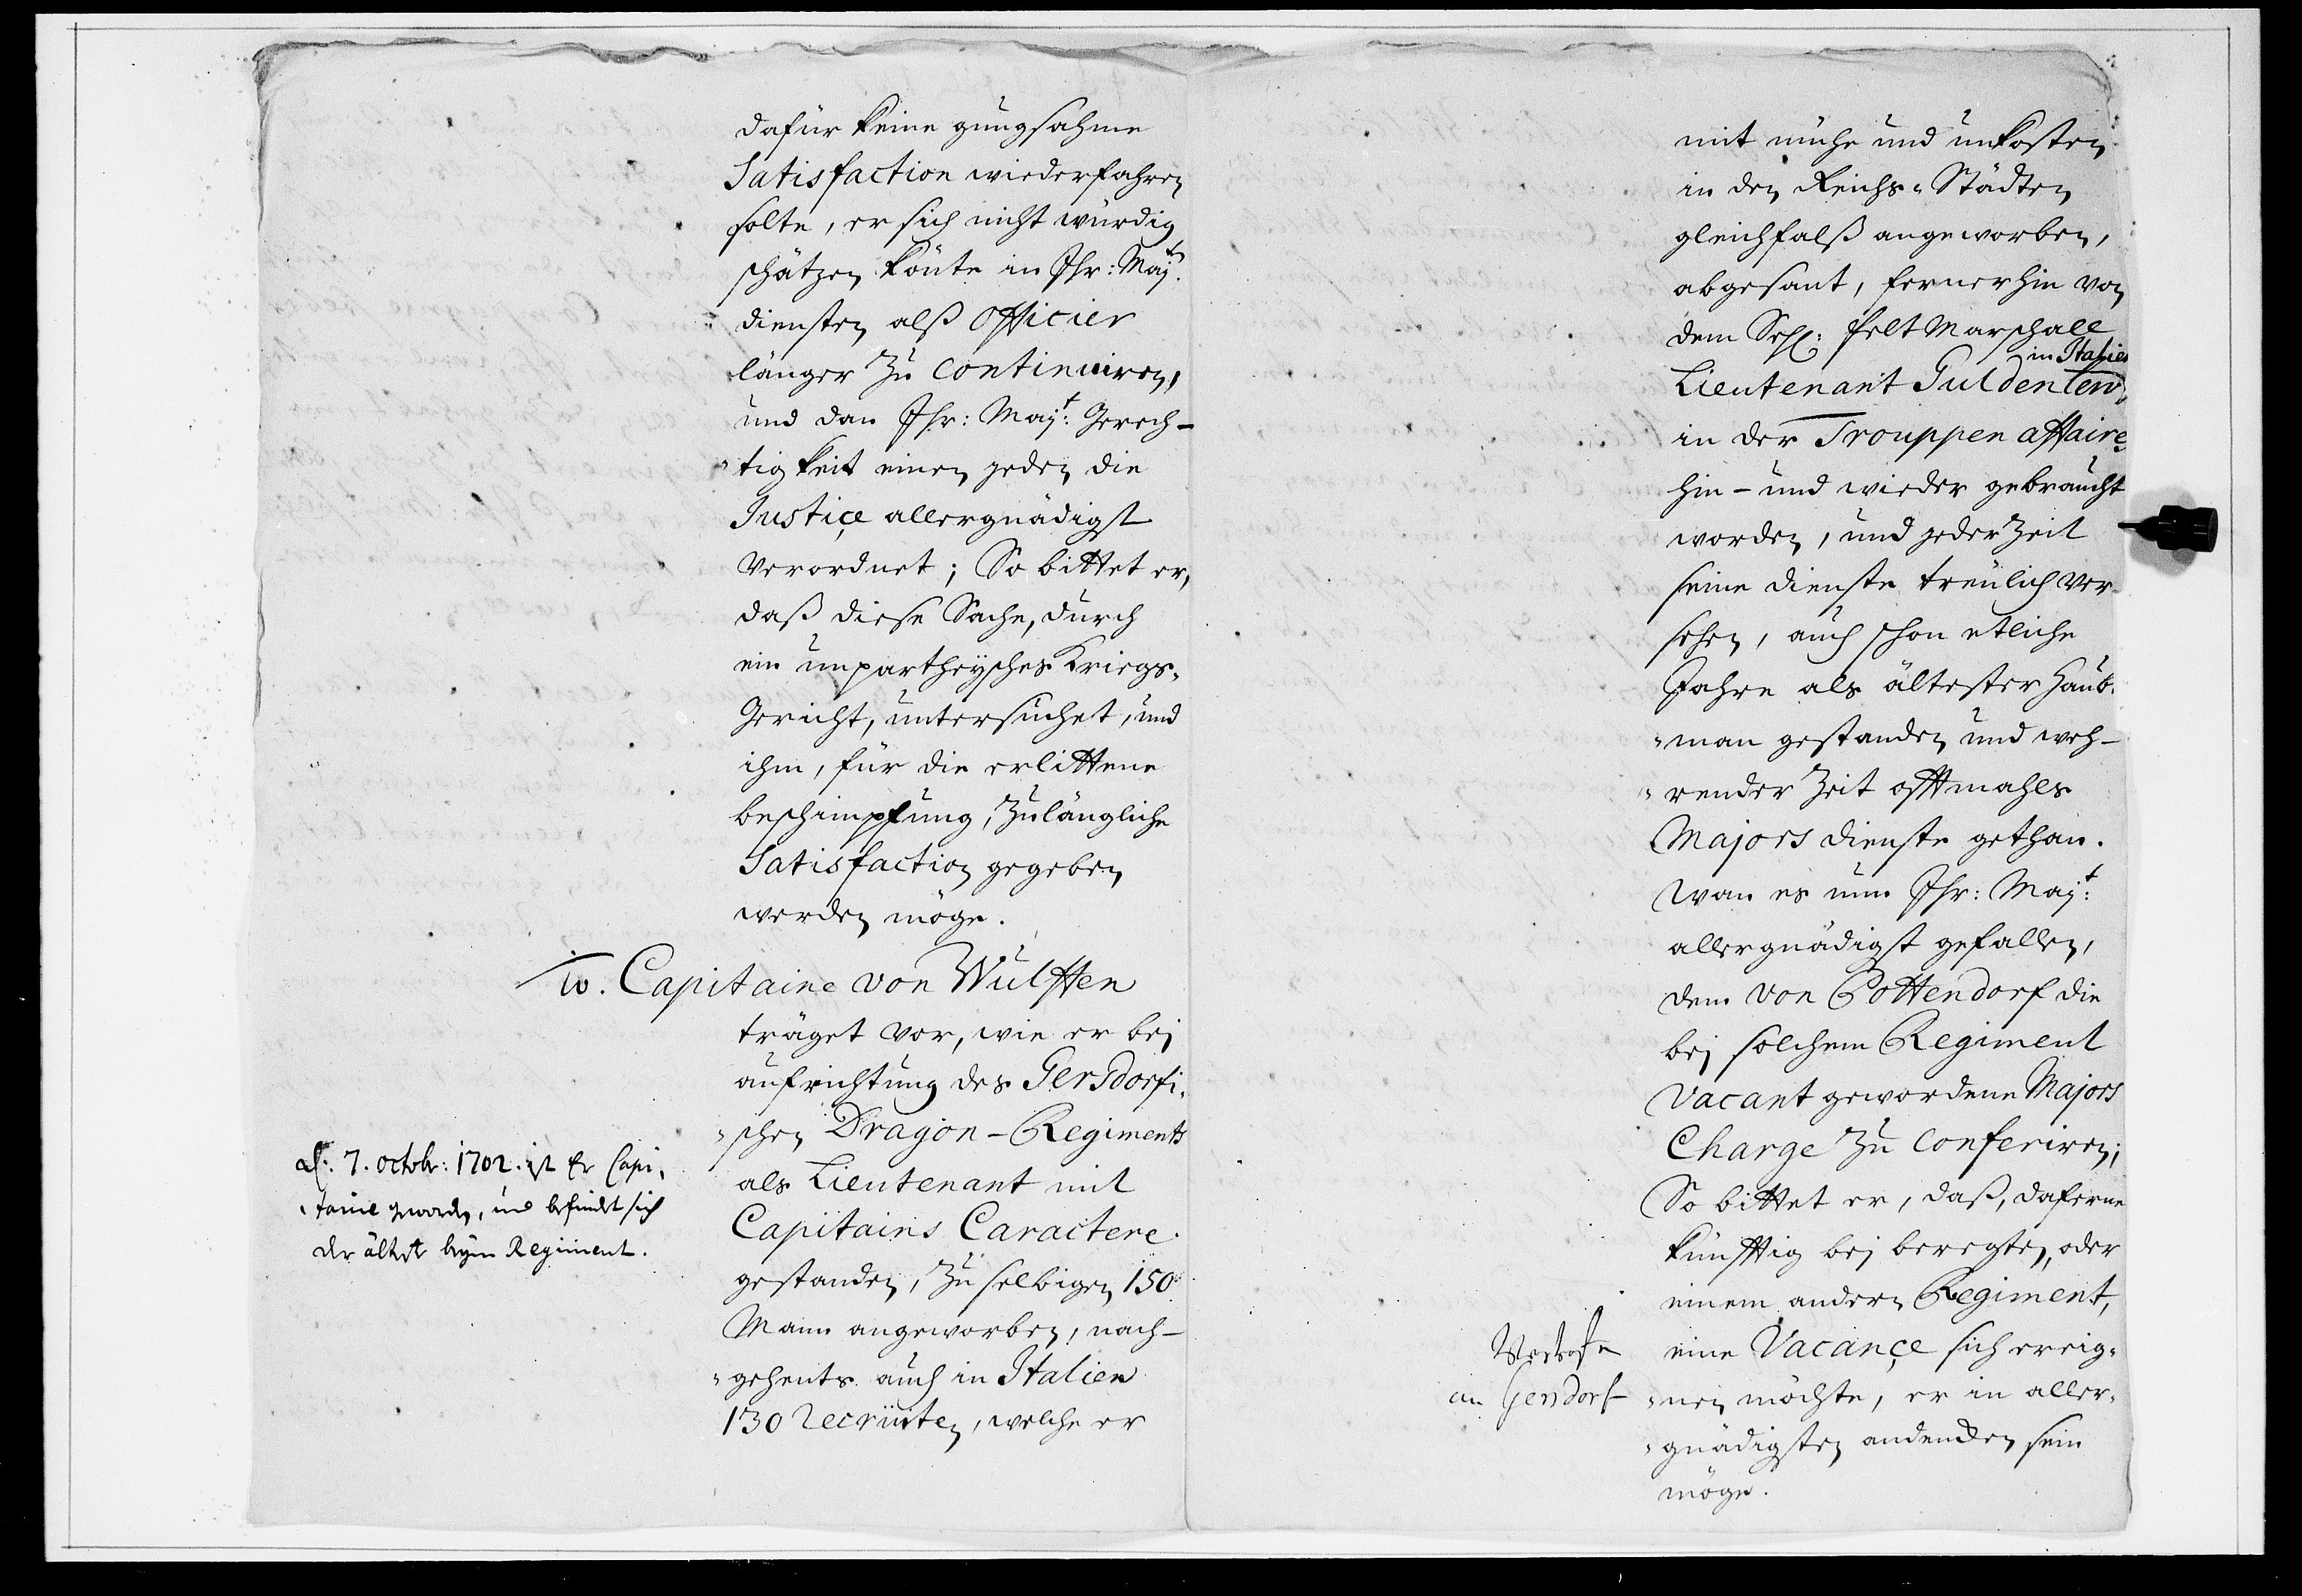 dafür keine gungsahme
Satisfaction wiederfahren
solte, er sich nicht würdig
schätzen könte in Ihr: Maytn.
diensten alß Officier
länger zu continuiren,
und dan Ihr: Mayt: Gerech-
"tigkeit einen jeden die
Justiçe allergnädigst
verordnet; So bittet er,
daß diese Sache, durch
ein unpartheysches Kriegs-
Gericht, untersuchet, und
ihm, für die erlittene
beschimpfung, zulängliche
Satisfaction gegeben
werden möge.
Capitaine von Wulffen
träget vor, wie er bej
aufrichtung des Gersdorfi-
"schen Dragon-Regiments
als Lieutenant mit
Capitains Caractere
gestanden, zu selbigen 150
Mann angeworben, nach-
"gehents auch in Italien
130 recruten, welche er
d: 7. octobr: 1702. ist Er Capi-
"taine worden, und befindet sich
der älteste beym Regiment.
mit mühe und unkosten
in den Reichs-Städten
gleichfalß angeworben,
abgesant, fernerhin von
dem Sehl: feltMarschall
in Italien
Lieutenant Guldenlew,
in der Trouppen affaire
hin- und wieder gebraucht
worden, und jederzeit
seine dienste treulich ver-
sehen, auch schon etliche
Jahre als ältester Haub-
"man gestanden und weh-
"render Zeit offtmahls
Majors dienste gethan.
Wan es nun Ihr: Mayt:
allergnädigst gefallen,
dem von Pottendorf die
bej solchem Regiment
Vacant gewordene Majors
Charge zu conferiren;
So bittet er, daß, daferne
künfftig bej beregten, oder
einem andern Regiment,
eine Vacançe sich ereig-
"nen möchte, er in aller-
"gnädigsten andencken sein
möge.
an Gersdorf